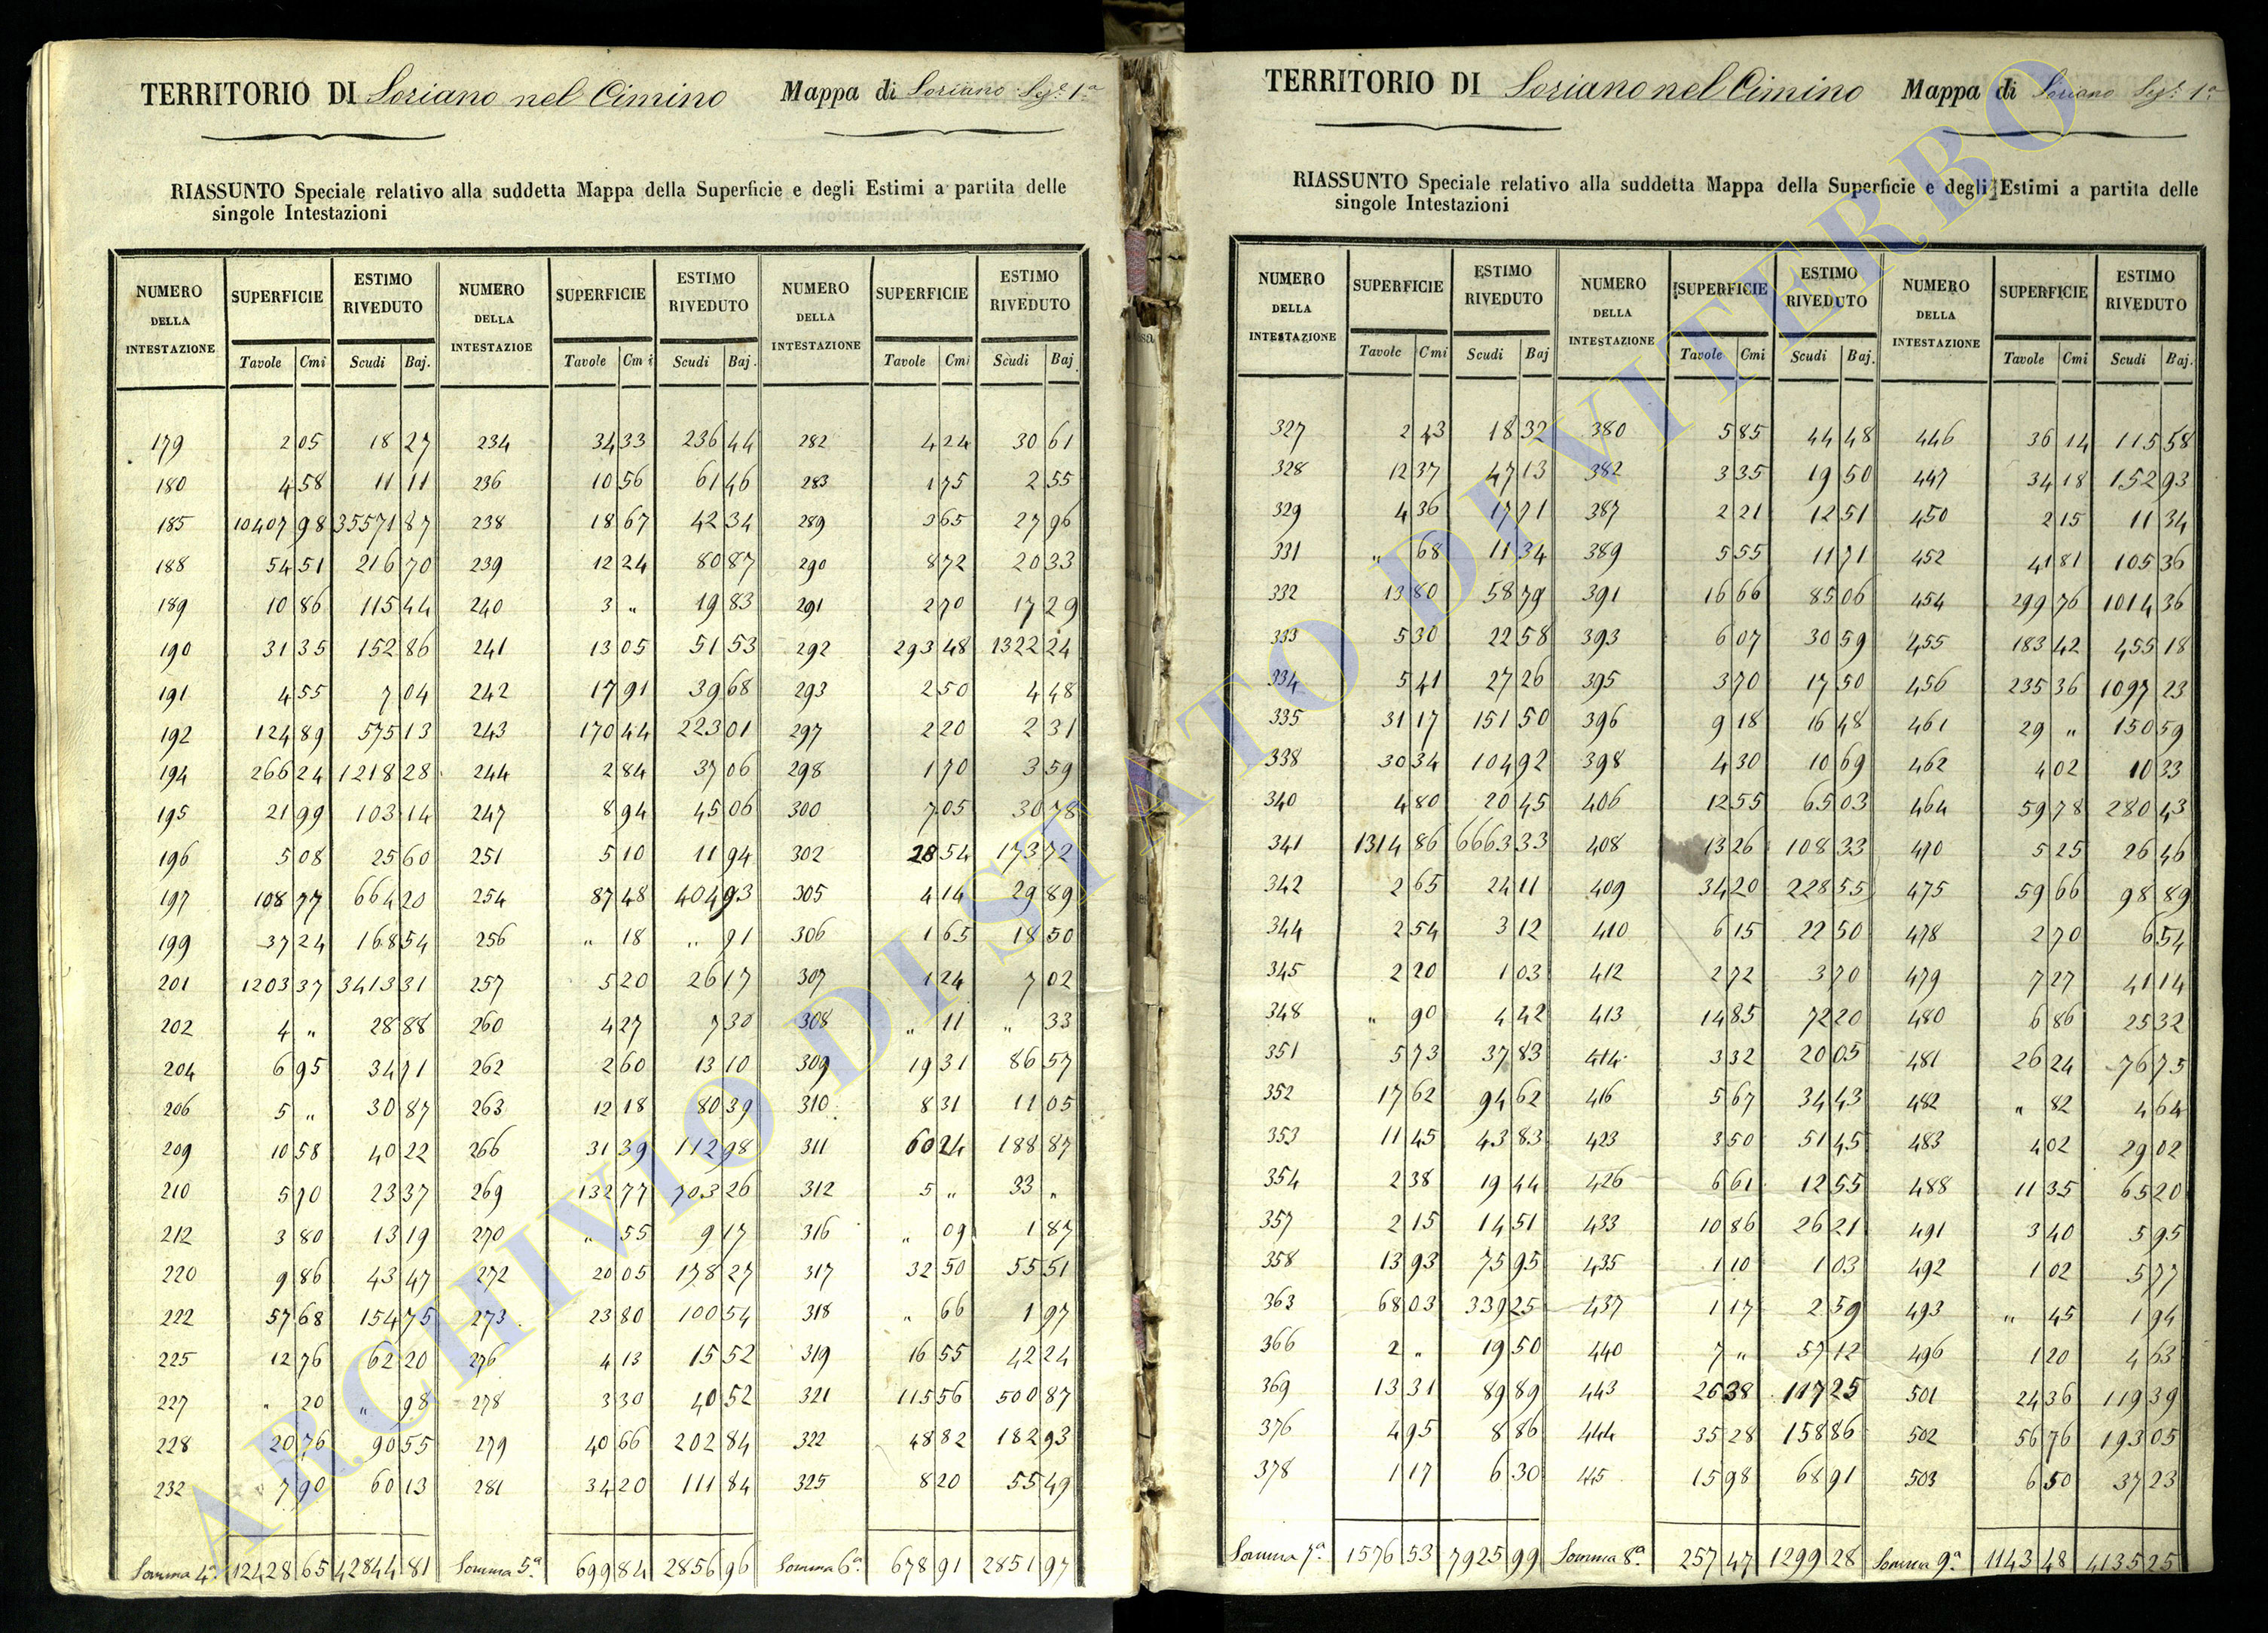 TERRITORIO DI Soriano nel Cimino Mappa di Soriano Sez.e 1a
RIASSUNTO Speciale relativo alla suddetta Mappa della Superficie e degli Estimi a partita delle
singole Intestazioni
NUMERO DELLA INTESTAZIONE SUPERFICIE ESTIMO RIVEDUTO NUMERO DELLA INTESTAZIOE SUPERFICIE ESTIMO RIVEDUTO NUMERO DELLA INTESTAZIONE SUPERFICIE ESTIMO RIVEDUTO
Tavole Cmi Scudi Baj. Tavole Cmi Scudi Baj. Tavole Cmi Scudi Baj
179 2 05 18 27 234 34 33 236 44 282 4 24 30 61
180 4 58 11 11 236 10 56 61 46 283 1 75 2 55
185 10407 98 35571 87 238 18 67 42 34 289 3 65 27 96
188 54 51 216 70 239 12 24 80 87 290 8 72 20 33
189 10 86 115 44 240 3 " 19 83 291 2 70 17 29
190 31 35 152 86 241 13 05 51 53 292 293 48 1322 24
191 4 55 7 04 242 17 91 39 68 293 2 50 4 48
192 124 89 575 13 243 170 44 223 01 297 2 20 2 31
194 266 24 1218 28 244 2 84 37 06 298 1 70 3 59
195 21 99 103 14 247 8 94 45 06 300 7 05 30 78
196 5 08 25 60 251 5 10 11 94 302 28 54 173 72
197 108 77 664 20 254 87 48 404 93 305 4 14 29 89
199 37 24 168 54 256 " 18 " 91 306 1 65 18 50
201 1203 37 3413 31 257 5 20 26 17 307 1 24 7 02
202 4 " 28 88 260 4 27 7 30 308 " 11 " 33
204 6 95 34 71 262 2 60 13 10 309 19 31 86 57
206 5 " 30 87 263 12 18 80 39 310 8 31 11 05
209 10 58 40 22 266 31 39 112 98 311 60 24 188 87
210 5 70 23 37 269 132 77 703 26 312 5 " 33 "
212 3 80 13 19 270 " 55 9 17 316 " 09 1 87
220 9 86 43 47 272 20 05 178 27 317 32 50 55 51
222 57 68 154 75 273 23 80 100 54 318 " 66 1 97
225 12 76 62 20 276 4 13 15 52 319 16 55 42 24
227 " 20 " 98 278 3 30 40 52 321 115 56 500 87
228 20 76 90 55 279 40 66 202 84 322 48 82 182 93
232 7 90 60 13 281 34 20 111 84 325 8 20 55 49
Somma 4a 12428 65 42844 81 Somma 5a 699 84 2856 96 Somma 6a 678 91 2851 97
TERRITORIO DI Soriano nel Cimino Mappa di Soriano Sez.e 1a
RIASSUNTO Speciale relativo alla suddetta Mappa della Superficie e degli Estimi a partita delle
singole Intestazioni
NUMERO DELLA INTESTAZIONE SUPERFICIE ESTIMO RIVEDUTO NUMERO DELLA INTESTAZIONE SUPERFICIE ESTIMO RIVEDUTO NUMERO DELLA INTESTAZIONE SUPERFICIE ESTIMO RIVEDUTO
Tavole Cmi Scudi Baj Tavole Cmi Scudi Baj. Tavole Cmi Scudi Baj.
327 2 43 18 32 380 5 85 44 48 446 36 14 115 58
328 12 37 47 13 382 3 35 19 50 447 34 18 152 93
329 4 36 17 71 387 2 21 12 51 450 2 15 11 34
331 " 68 11 34 389 5 55 11 71 452 41 81 105 36
332 13 80 58 79 391 16 66 85 06 454 299 76 1014 36
333 5 30 22 58 393 6 07 30 59 455 183 42 455 18
334 5 41 27 26 395 3 70 17 50 456 235 36 1097 23
335 31 17 151 50 396 9 18 16 48 461 29 " 150 59
338 30 34 104 92 398 4 30 10 69 462 4 02 10 33
340 4 80 20 45 406 12 55 65 03 464 59 78 280 43
341 1314 86 6663 33 408 13 26 108 33 470 5 25 26 46
342 2 65 24 11 409 34 20 228 55 475 59 66 98 89
344 2 54 3 12 410 6 15 22 50 478 2 70 6 54
345 2 20 1 03 412 2 72 3 70 479 7 27 41 14
348 " 90 4 42 413 14 85 72 20 480 6 86 25 32
351 5 73 37 83 414 3 32 20 05 481 26 24 76 75
352 17 62 94 62 416 5 67 34 43 482 " 82 4 64
353 11 45 43 83 423 3 50 51 45 483 4 02 29 02
354 2 38 19 44 426 6 61 12 55 488 11 35 65 20
357 2 15 14 51 433 10 86 26 21 491 3 40 5 95
358 13 93 75 95 435 1 10 1 03 492 1 02 5 77
363 68 03 339 25 437 1 17 2 59 493 " 45 1 94
366 2 " 19 50 440 7 " 57 12 496 1 20 4 63
369 13 31 89 89 443 26 38 117 25 501 24 36 119 39
376 4 95 8 86 444 35 28 158 86 502 56 76 193 05
378 1 17 6 30 445 15 98 68 91 503 6 50 37 23
Somma 7a 1576 53 7925 99 Somma 8a 257 47 1299 28 Somma 9a 1143 48 4135 25
ARCHIVIO DI STATO DI VITERBO